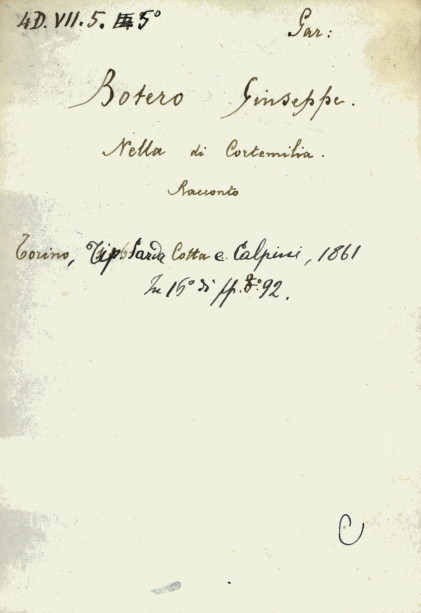 4D. VII. 5. 5°
Gar:
Botero Giuseppe.
Nella di Cortemilia.
Racconto
Torino, Tip. Sarda Cotta e Calpini, 1861
In 16° di pp. 92.
C